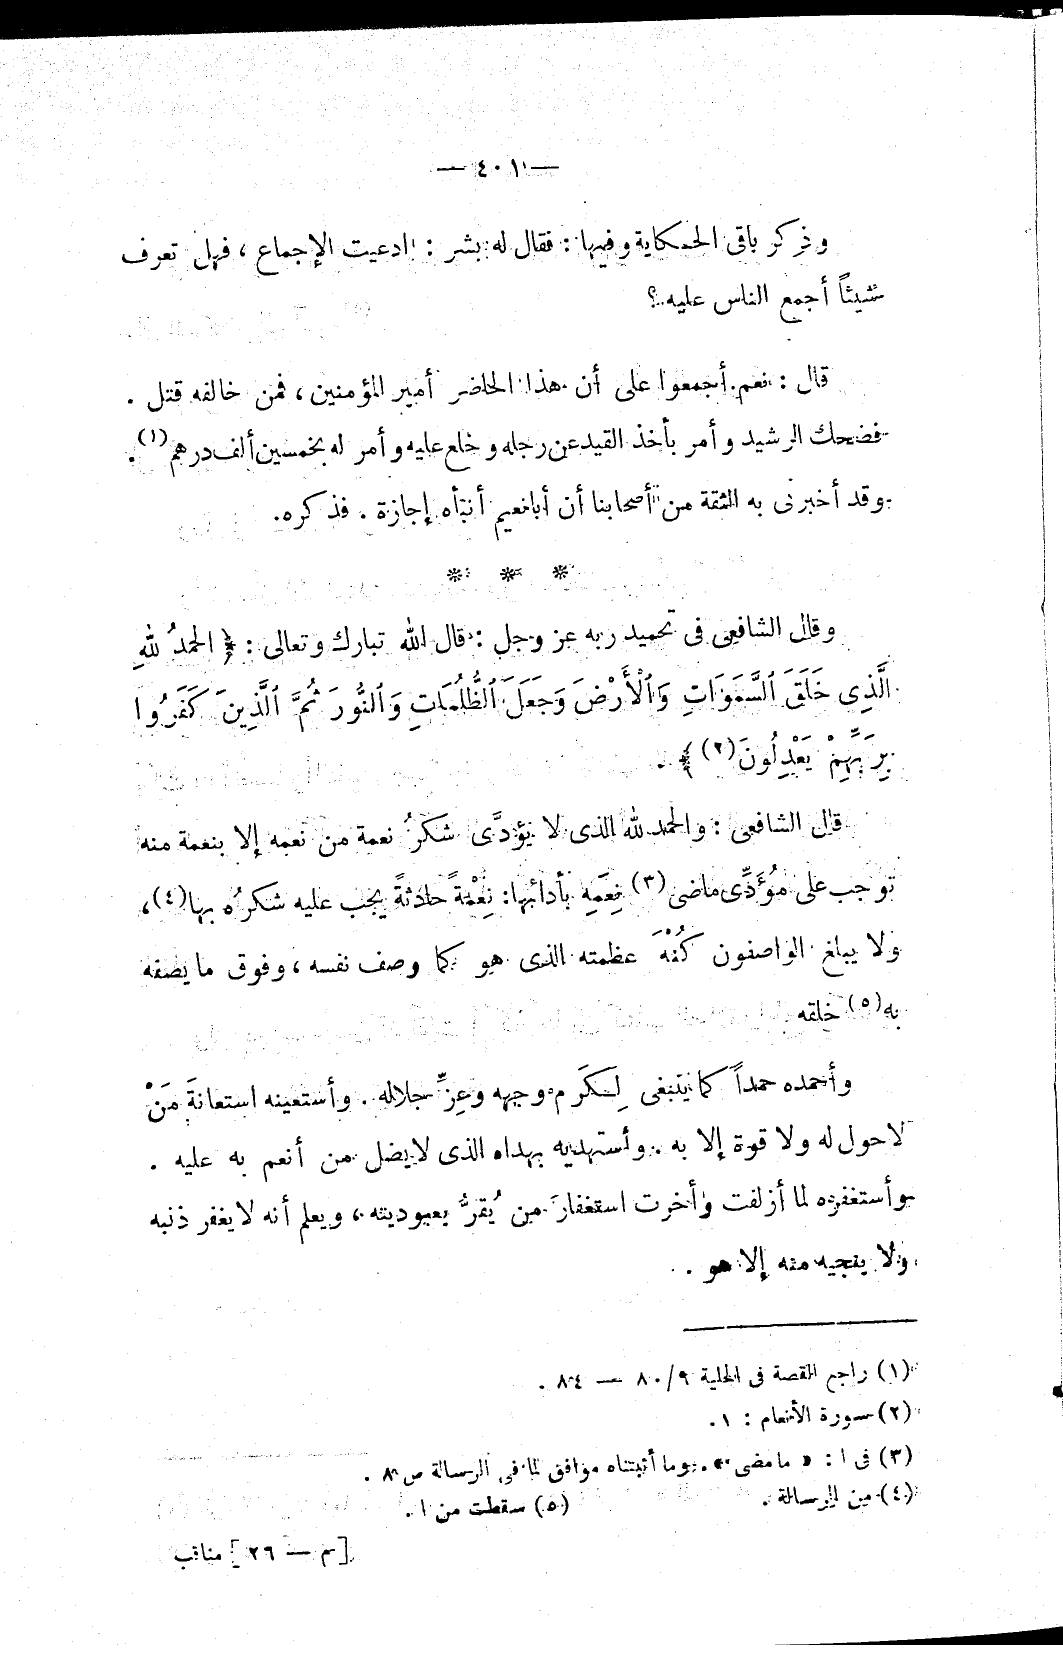 — ٤٠١ —
وذكر باقى الحكاية وفيها : فقال له بشر : ادعيت الإجماع ، فهل تعرف
شيئاً أجمع الناس عليه ؟
قال : نعم . أجمعوا على أن هذا الحاضر أمير المؤمنين ، فمن خالفه قتل .
فضحك الرشيد وأمر بأخذ القيد عن رجله وخلع عليه وأمر له بخمسين ألف درهم (١) .
وقد أخبرنى به الثقة من أصحابنا أن أبا نعيم أنبأه إجازة . فذكره .
* * *
وقال الشافعى فى تحميد ربه عز وجل : قال الله تبارك وتعالى : ﴿ الحمدُ للهِ
الَّذِى خَلَقَ ٱلسَّمَوَاتِ وَٱلْأَرْضَ وَجَعَلَ ٱلظُّلُمَاتِ وَٱلنُّورَ ثُمَّ ٱلَّذِينَ كَفَرُوا
بِرَبِّهِمْ يَعْدِلُونَ (٢) ﴾ .
قال الشافعى : والحمد لله الذى لا يُؤدَّى شكرُ نعمة من نعمه إلا بنعمة منه
توجب على مُؤَدِّى ماضى (٣) نِعَمِهِ بأدائها : نِعْمَةً حادثةً يجب عليه شكرُه بها (٤) ،
ولا يبلغ الواصفون كُنْهَ عظمته الذى هو كما وصف نفسه ، وفوق ما يصفه
به (٥) خلقه
وأحمده حمداً كما ينبغى لِكَرَم وجهه وعِزِّ جلاله . وأستعينه استعانةَ مَنْ
لا حول له ولا قوة إلا به . وأستهديه بهداه الذى لا يضل من أنعم به عليه .
وأستغفره لما أزلفت وأخرت استغفارَ من يُقرُّ بعبوديته ، ويعلم أنه لا يغفر ذنبه
ولا ينجيه منه إلا هو .
(١) راجع القصة فى الحلية ٨٠/٩ — ٨٤ .
(٢) سورة الأنعام : ١ .
(٣) فى ا : « ما مضى » . وما أثبتناه موافق لما فى الرسالة ص ٨ .
(٤) من الرسالة . (٥) سقطت من ا .
[ م — ٢٦ ] مناقب